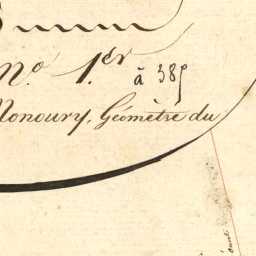 N.º 1.er
à 385
Monoury, Géomètre du